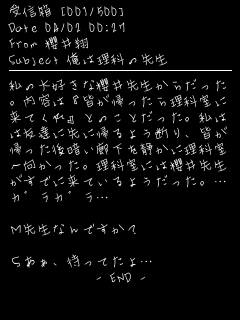 受信箱 [001/500]
Date 04/02 00:27
From 櫻井翔
Subject 俺は理科の先生
私の大好きな櫻井先生からだった
。内容は『皆が帰ったら理科室に
来てくれ』とのことだった。私は
は友達に先に帰るよう断り、皆が
帰った後暗い廊下を静かに理科室
へ向かった。理科室には櫻井先生
がすでに来ているようだった。…
ガラガラ…
M先生なんですか?
Sああ、待ってたよ…
- END -